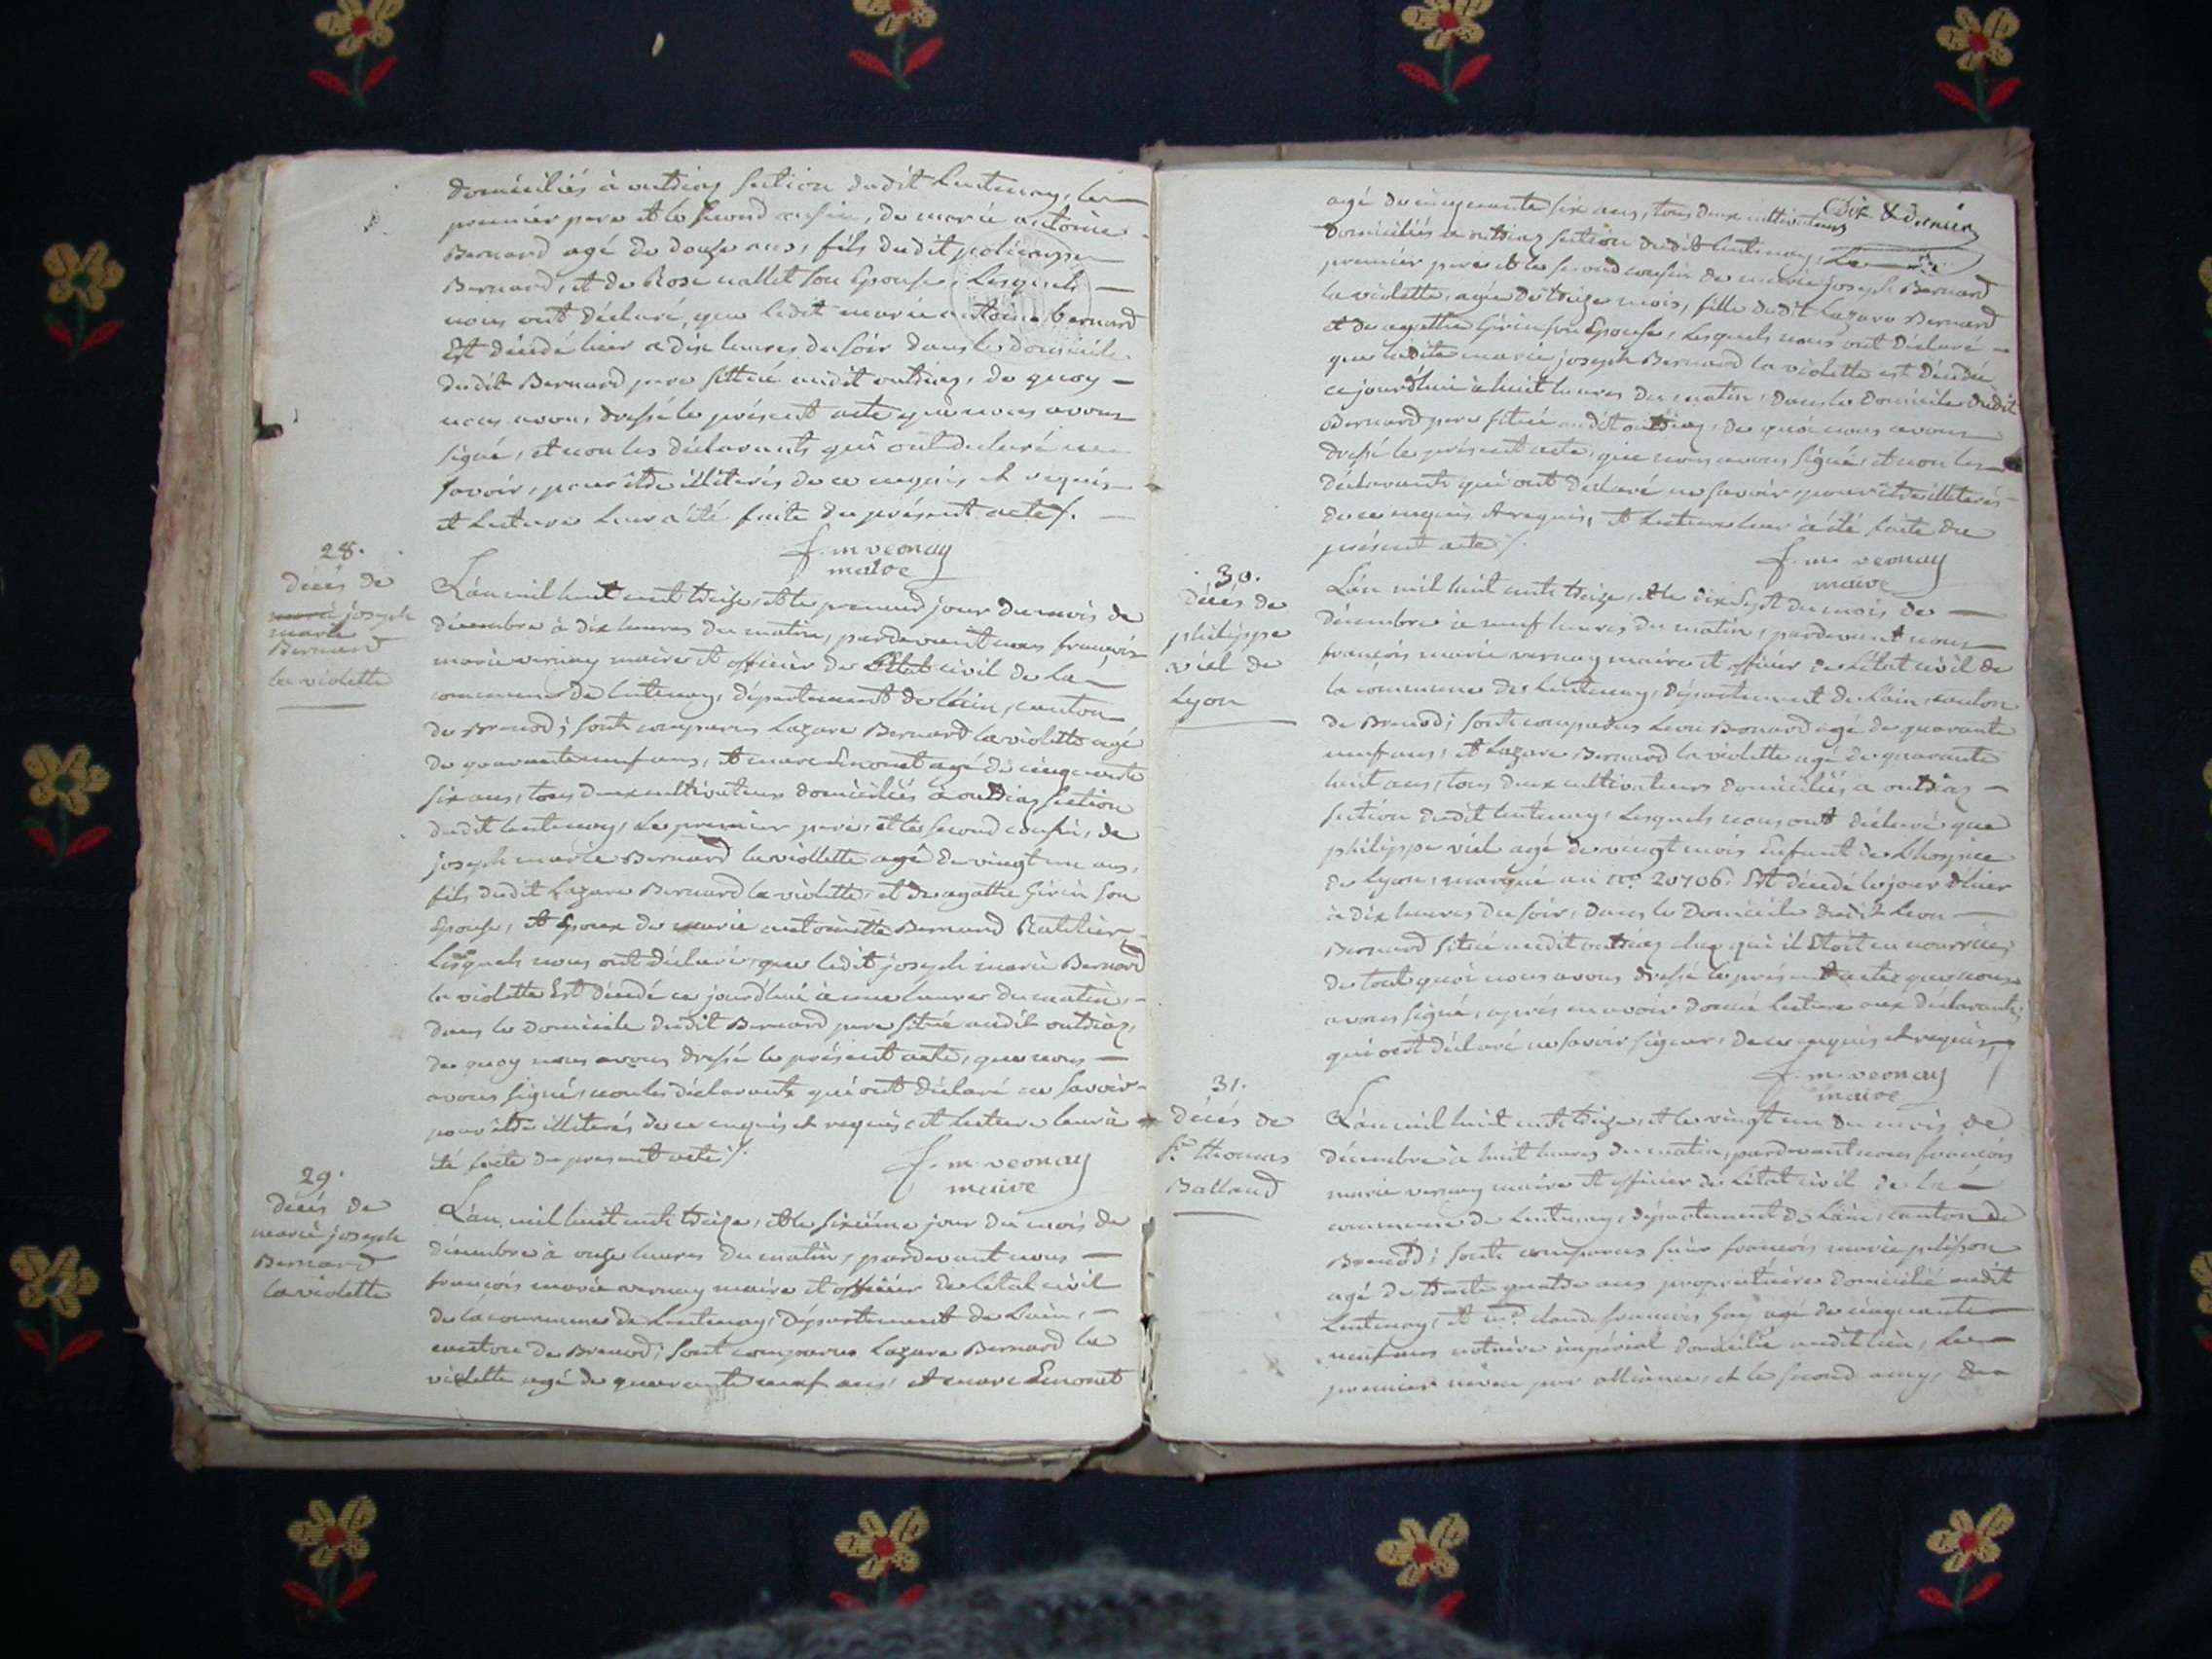 domiciliés à outriaz section dudit Lentenay, le
premier pere et le second cousin, de marie antoine
Bernard agé de douze ans, fils dudit policarpe
Bernard, et de Rose vallet son Epouse, Lesquels
nous ont déclaré, que ledit marie antoine bernard
Est décédé hier a dix heures du soir dans le domicile
dudit Bernard pere sittué audit outriaz, de quoy
nous avons dressé le présent acte que nous avons
signé, et non les déclarants qui ont declaré ne
savoir, pour être illiterés de ce enquis et requis
et Lecture Leur a été faite du présent acte /.
f. m vernay
maire
28.
décés de
marie joseph
marie
Bernard
la violette
L'an mil huit cent treize, et le premier jour du mois de
décembre à dix heures du matin, pardevant nous françois
marie vernay maire et officier de l'Etat civil de la
commune de lentenay, département de l'ain, canton
de Brenod; sont comparus Lazare Bernard la violette agé
de quarante neuf ans, et marc Emonet agé de cinquante
six ans, tous deux cultivateurs domiciliés a outriaz section
dudit lentenay, Le premier pere, et le second cousin, de
joseph marie Bernard la viollette agé de vingt un ans,
fils dudit Lazare Bernard la violette, et de agathe Girin son
Epouse, et Epoux de marie antoinette Bernard
Lesquels nous ont déclaré, que ledit joseph marie Bernard
la violette Est décédé ce jourd'hui à une heures du matin,
dans le domicile dudit Bernard pere situé audit outriaz,
de quoy nous avons dressé le présent acte, que nous
avons signé, non les déclarants qui ont déclaré ne savoir
pour être illiterés de ce enquis et requis et lecture leur a
été faite du present acte /.
f. m. vernay
maire
29.
décés de
marie joseph
Bernard
la violette
L'an mil huit cent treize, et le sixième jour du mois de
décembre à onze heures du matin, pardevant nous
françois marie vernay maire et officier de l'état civil
de la commune de Lentenay, Département de L'ain,
canton de Brenod; sont comparus Lazare Bernard la
violette agé de quarante neuf ans, et marc Emonet
Dix & dernier
agé de cinquante six ans, tous deux cultivateurs
domiciliés a outriaz section dudit lentenay, Le
premier pere et le second cousin de marie joseph Bernard
la violette, agée de treize mois, fille dudit Lazare Bernard
et de agathe Girin son Epouse, Lesquels nous ont déclaré
que ladite marie joseph Bernard la violette est décédée
ce jourd'hui à huit heures du matin, dans le domicile dudit
Bernard pere situé audit outriaz, de quoi nous avons
dressé le présent acte, que nous avons signé, et non les
déclarants qui ont déclaré ne savoir pour être illiterés
de ce enquis et requis, et lecture leur à été faite du
présent acte /.
f. m. vernay
maire
30.
décés de
philippe
viel de
Lyon
L'an mil huit cent treize, et le dix sept du mois de
décembre à neuf heures du matin, pardevant nous
françois marie vernay maire et officier de L'état civil de
la commune de Lentenay, département de L'ain, canton
de Brenod; sont comparus Leon Bernard agé de quarante
neuf ans, et Lazare Bernard la violette agé de quarante
huit ans, tous deux cultivateurs domiciliés a outriaz
section dudit lentenay, Lesquels nous ont déclaré que
philippe viel agé de vingt mois Enfant de L'hospice
de Lyon, marqué au no. 20706. Est décédé le jour d'hier
à dix heures du soir, dans le Domicile dudit Leon
Bernard situé audit outriaz chez qui il Etoit en nourrice,
de tout quoi nous avons dressé le présent acte que nous
avons signé, après en avoir donné lecture aux déclarants,
qui ont déclaré ne savoir signer, de ce enquis et requis,
f. m. vernay
maire
31.
décés de
sr. thomas
Balland
L'an mil huit cent treize, et le vingt un du mois de
décembre à huit heures du matin, pardevant nous françois
marie vernay maire et officier de L'état civil de la
commune de Lentenay, département de L'ain, canton de
Brenod; sont comparus sieur françois marie
agé de trente quatre ans propriétaire domicilié audit
Lentenay, et mr. claude françois Gay agé de cinquante
neuf ans notaire impérial domicilié audit lieu, Le
premier neveu par alliance, et le second amy, de